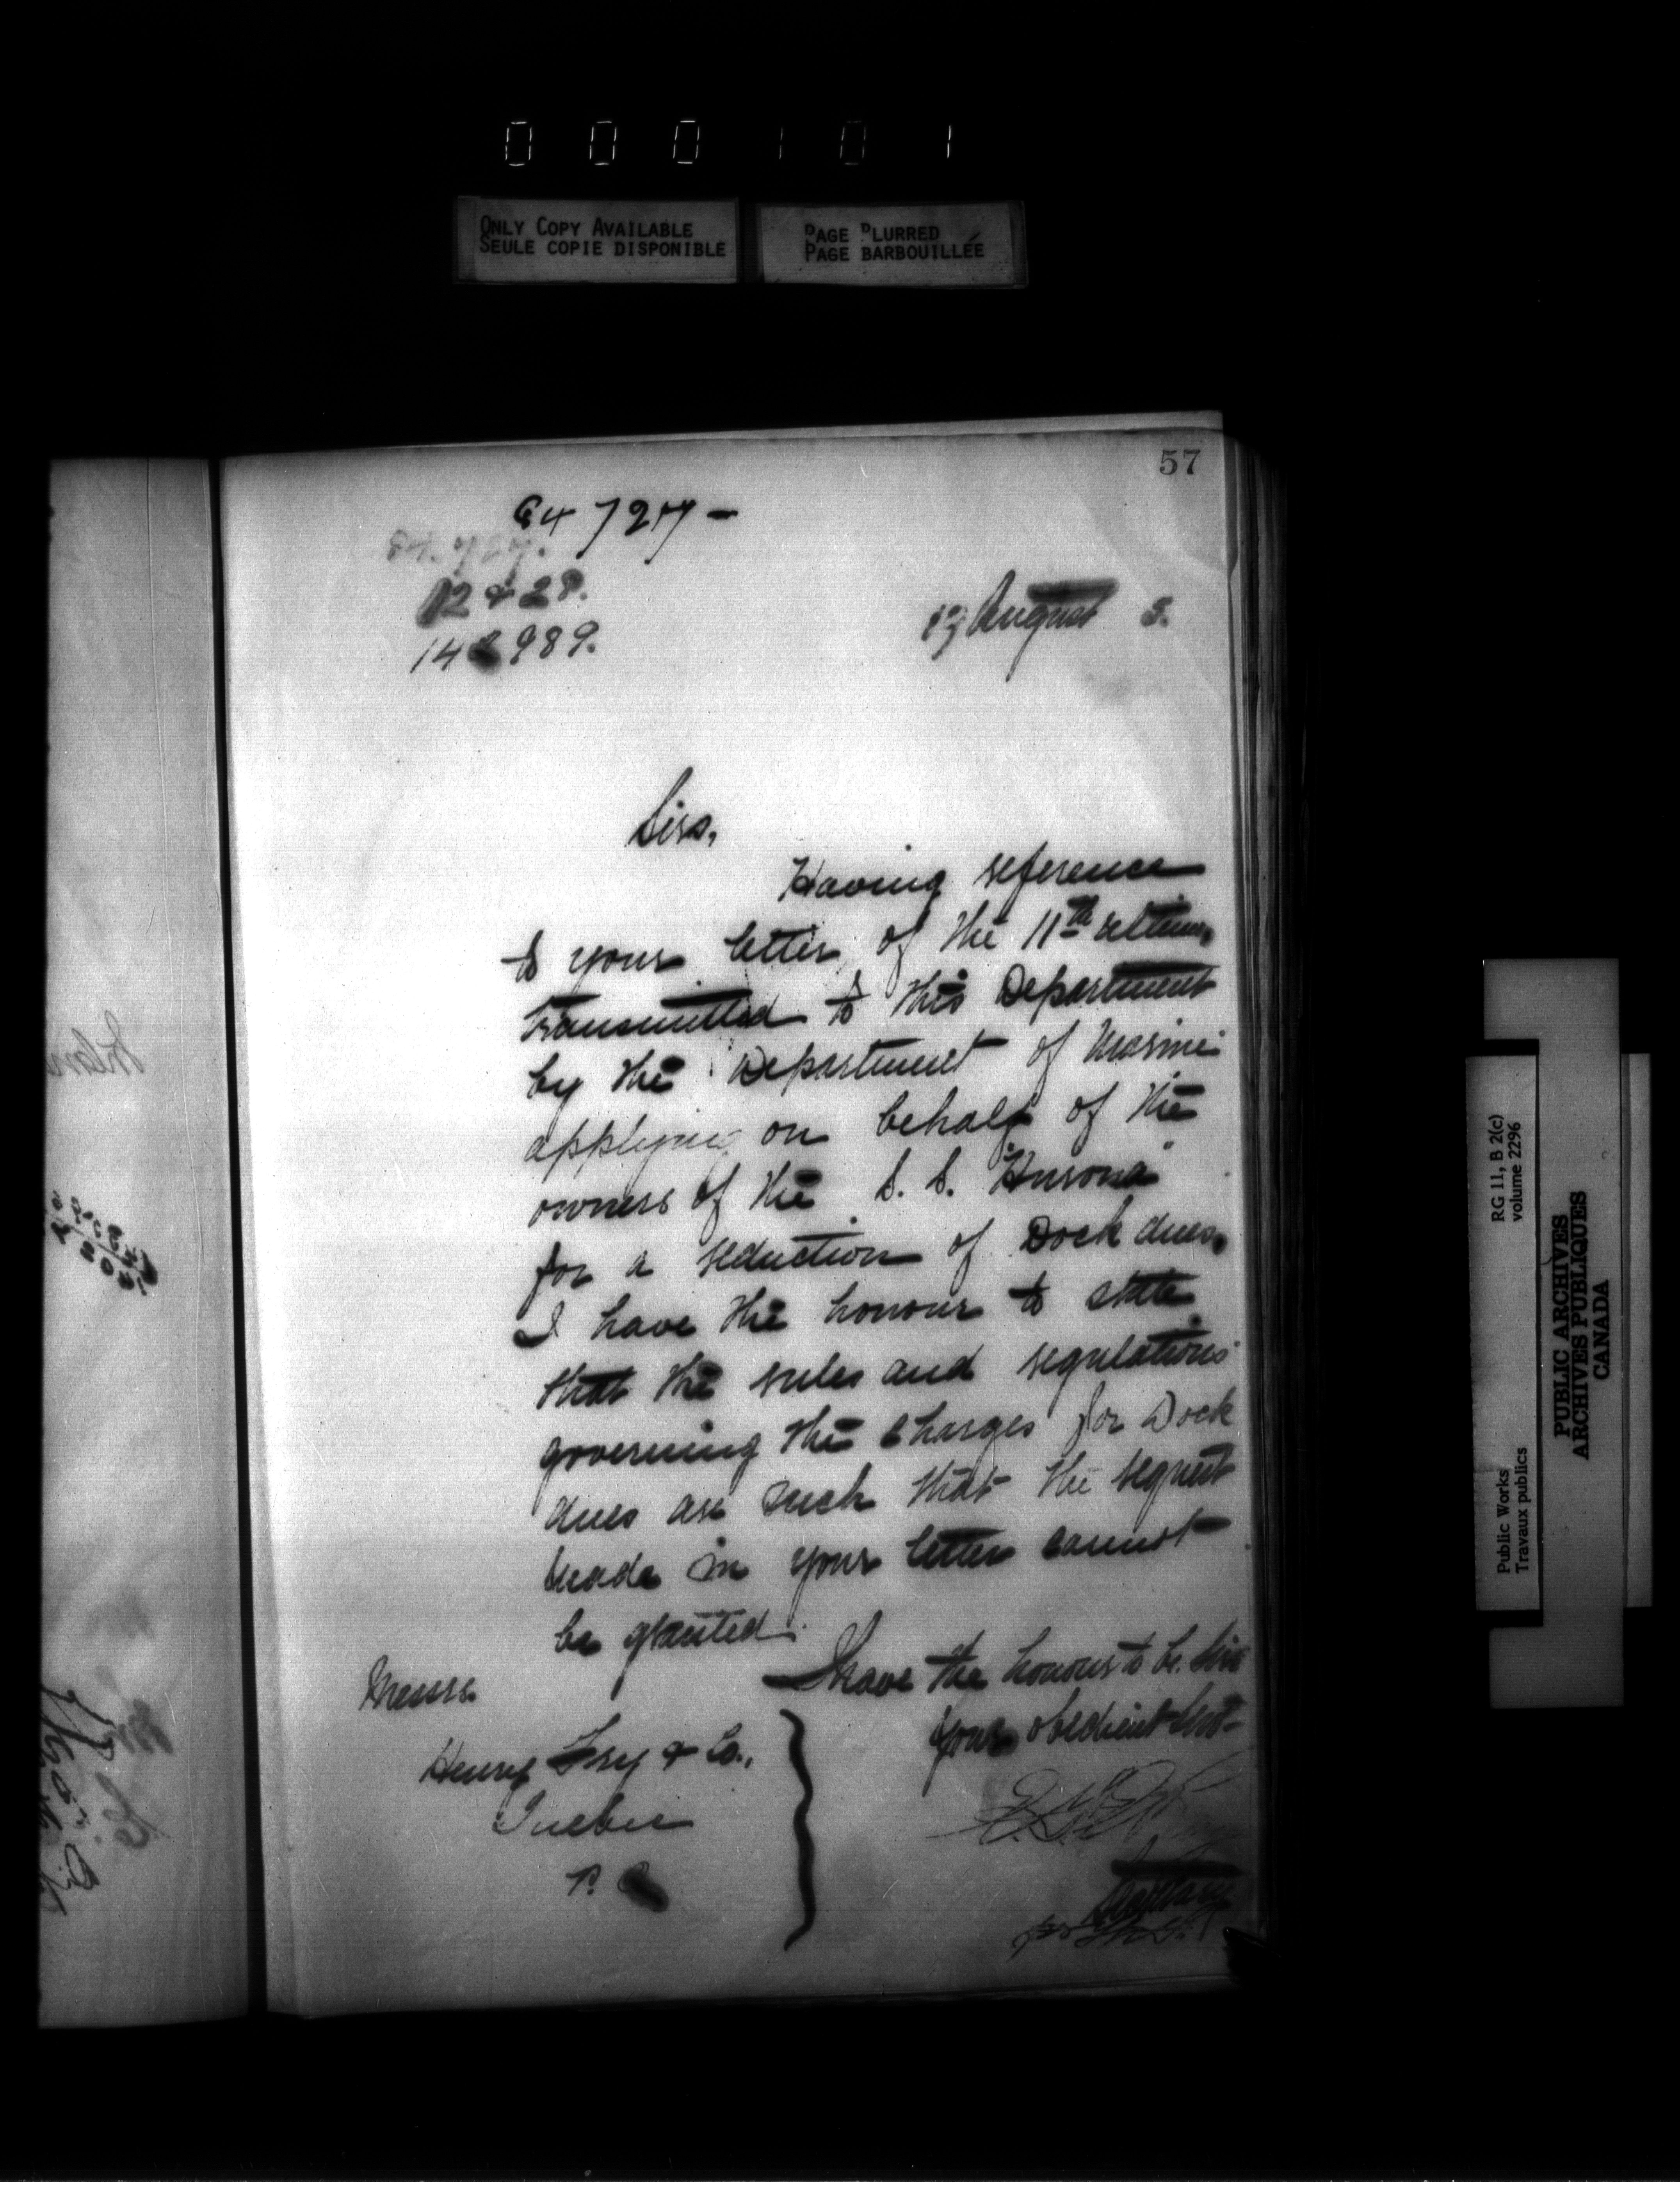 000101
ONLY COPY AVAILABLE
SEULE COPIE DISPONIBLE
PAGE BLURRED
PAGE BARBOUILLÉE
57
64727 -
84.727.
142989.
August 5.
Sirs,
Having reference
to your letter of the 11th ultimo,
transmitted to this Department
by the Department of Marine
applying on behalf of the
owners of the S. S. "Hurona"
for a reduction of Dock dues,
I have the honour to state
that the rules and regulations
governing the charges for Dock
dues are such that the request
made in your letter cannot
be granted.
I have the honour to be, Sirs
Your obedient Servt
Messrs.
Henry Fry & Co.,
Quebec
P.
Secretary
RG 11, B 2(c)
volume 2296
Public Works
Travaux publics
PUBLIC ARCHIVES
ARCHIVES PUBLIQUES
CANADA